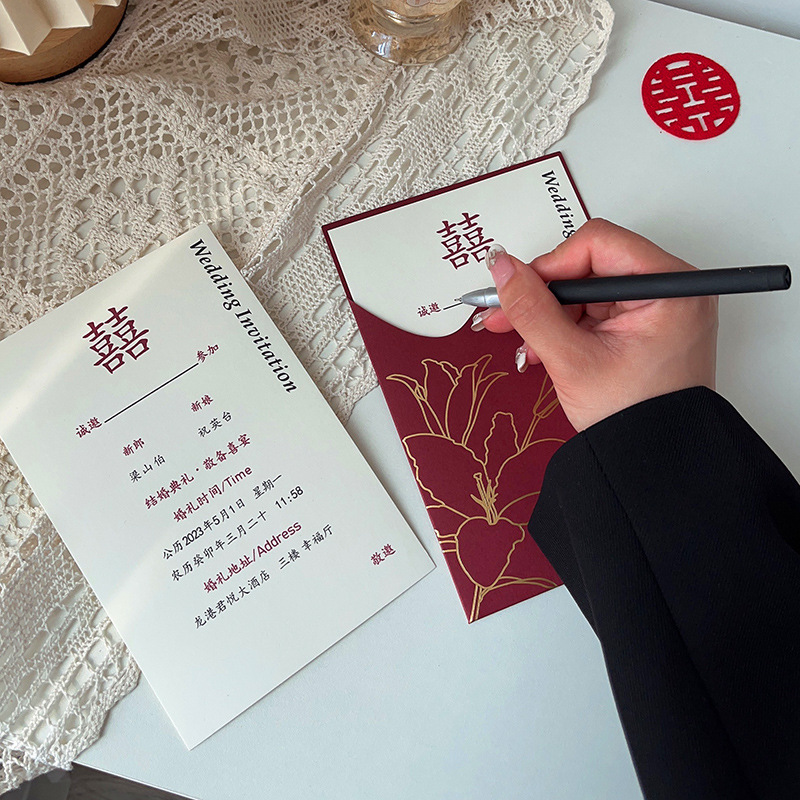 囍
Wedding Invitation
诚邀 参加
新郎 新娘
梁山伯 祝英台
结婚典礼·敬备喜宴
婚礼时间/Time
公历2023年5月1日 星期一
农历癸卯年三月二十 11:58
婚礼地址/Address
龙港君悦大酒店 三楼 幸福厅
敬邀
囍
Wedding
诚邀
囍